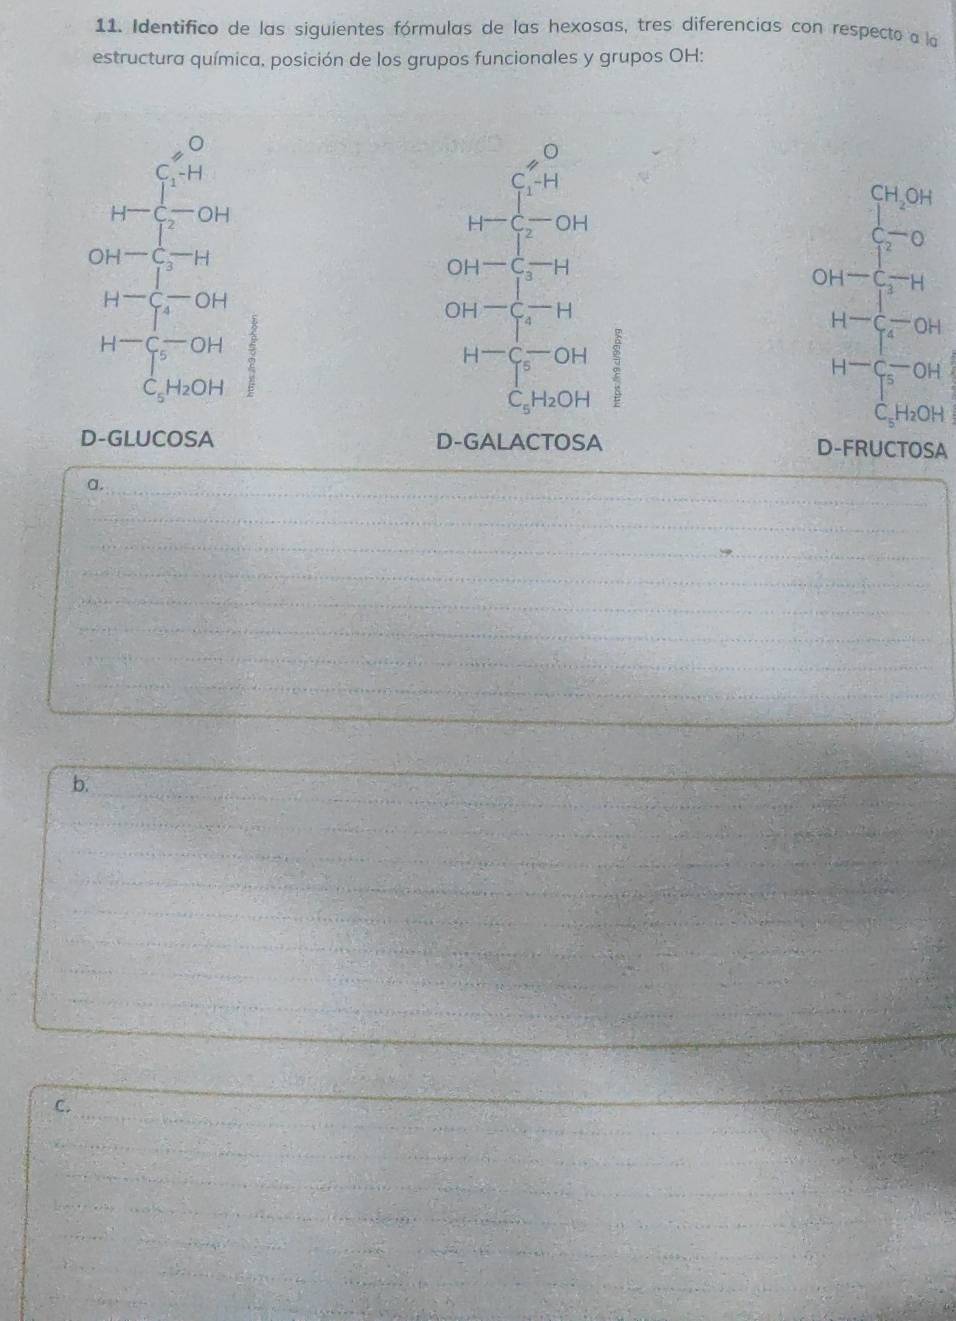 11. Identifico de las siguientes fórmulas de las hexosas, tres diferencias con respecto a la
estructura química, posición de los grupos funcionales y grupos OH:
O
C₁-H
H—C₂—OH
OH—C₃—H
H—C₄—OH
H—C₅—OH
C₅H₂OH
D-GLUCOSA
O
C₁-H
H—C₂—OH
OH—C₃—H
OH—C₄—H
H—C₅—OH
C₅H₂OH
https://n9.cl/99pyg
D-GALACTOSA
CH₂OH
C₂—O
OH—C₃—H
H—C₄—OH
H—C₅—OH
C₅H₂OH
D-FRUCTOSA
a.
b.
c.